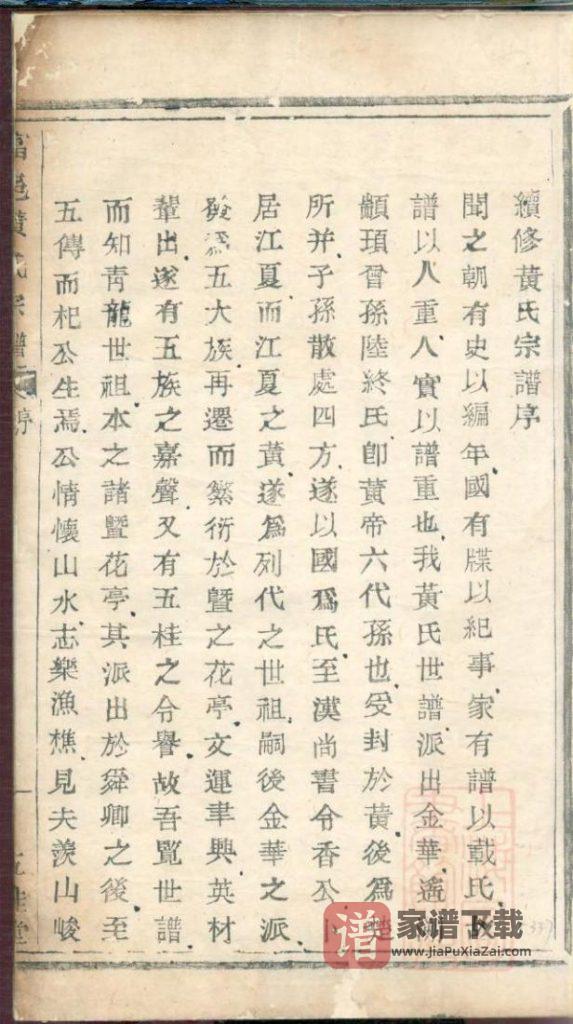 續修黃氏宗譜序
聞之朝有史以編年國有牒以紀事家有譜以載氏
譜以人重人實以譜重也我黃氏世譜派出金華遙
顓頊曾孫陸終氏卽黃帝六代孫也受封於黃後為楚
所并子孫散處四方遂以國為氏至漢尚書令香公卜
居江夏而江夏之黃遂為列代之世祖嗣後金華之派
發為五大族再遷而繁衍於暨之花亭文運聿興英材
輩出遂有五族之嘉聲又有五桂之令譽故吾覽世譜
而知靑龍世祖本之諸暨花亭其派出於舜卿之後至
五傳而杞公生焉公情懷山水志樂漁樵見夫羨山峻
黃氏宗譜
序
一
桂堂
譜
家谱下载
www.JiaPuXiaZai.com